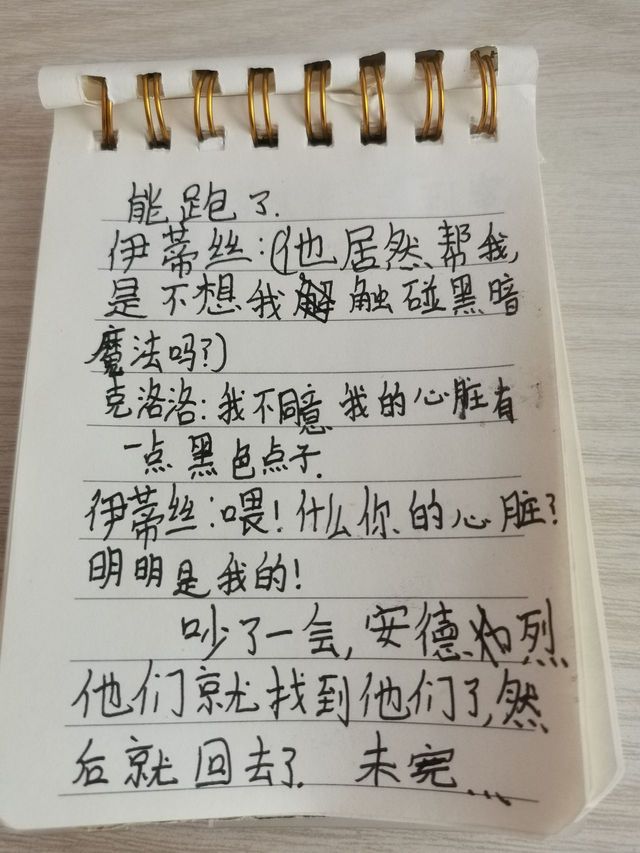 能跑了.
伊蒂丝:(他居然帮我,
是不想我解触碰黑暗
魔法吗?)
克洛洛:我不同意我的心脏有
一点黑色点子.
伊蒂丝:喂!什么你的心脏?
明明是我的!
吵了一会,安德烈
他们就找到他们了,然
后就回去了. 未完...